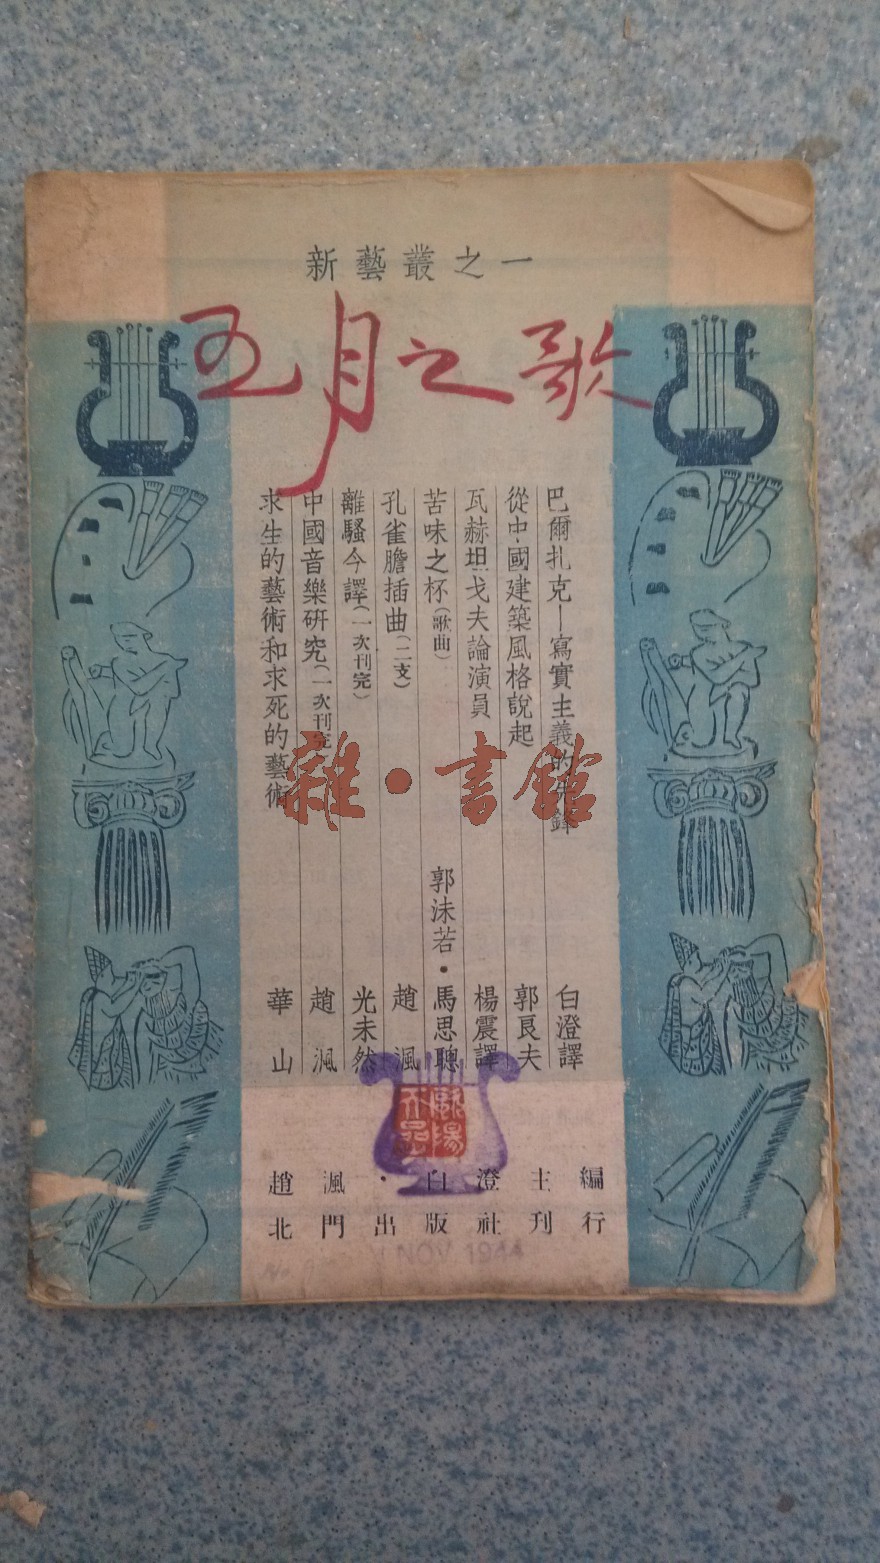 新藝叢之一
五月之歌
巴爾扎克—寫實主義的先鋒 白澄譯
從中國建築風格說起 郭良夫
瓦赫坦戈夫論演員 楊震譯
苦味之杯(歌曲) 郭沫若·馬思聰
孔雀膽插曲(二支) 趙渢
離騷今譯(一次刊完) 光未然
中國音樂研究(一次刊完) 趙渢
求生的藝術和求死的藝術 華山
雜·書館
趙渢·白澄主編
北門出版社刊行
NOV 1944